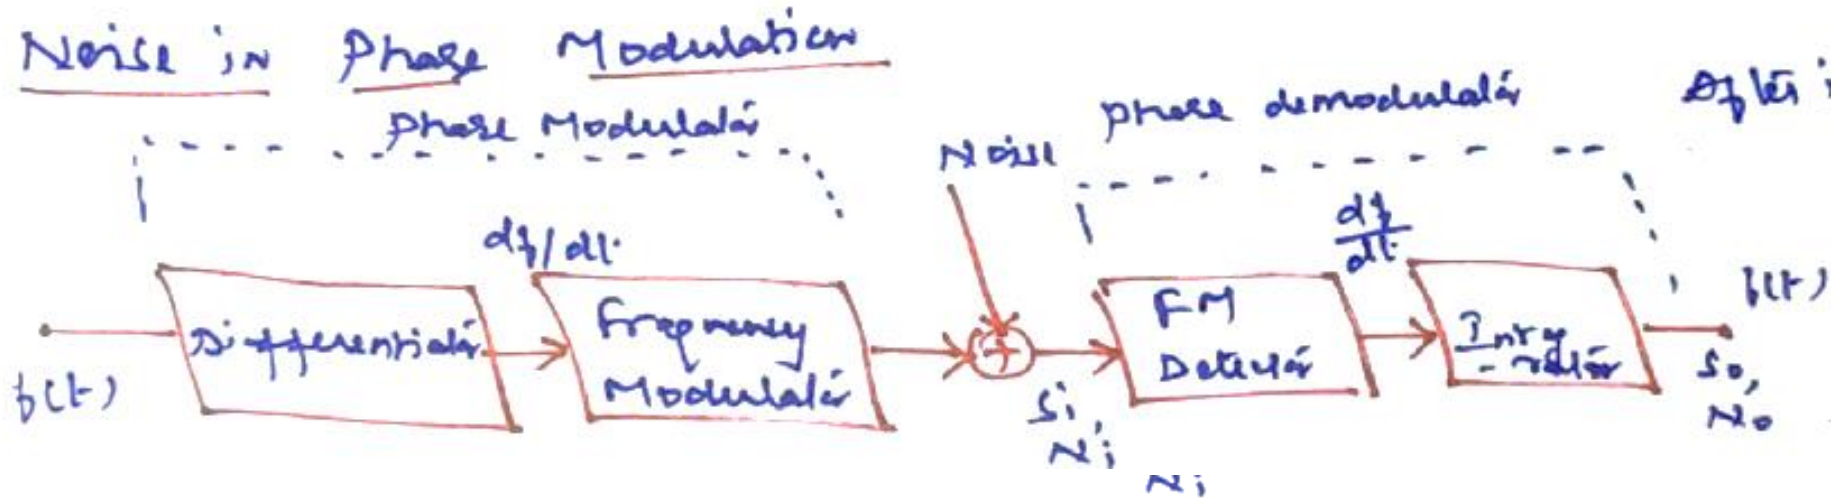 Noise in Phase Modulation
Phase Modulator
Noise
phase demodulator
After i
df/dt
df
dt
f(t)
Differentiator
Frequency
Modulator
+
Si,
Ni
Ni
FM
Detector
Integ
- rator
f(t)
So,
No